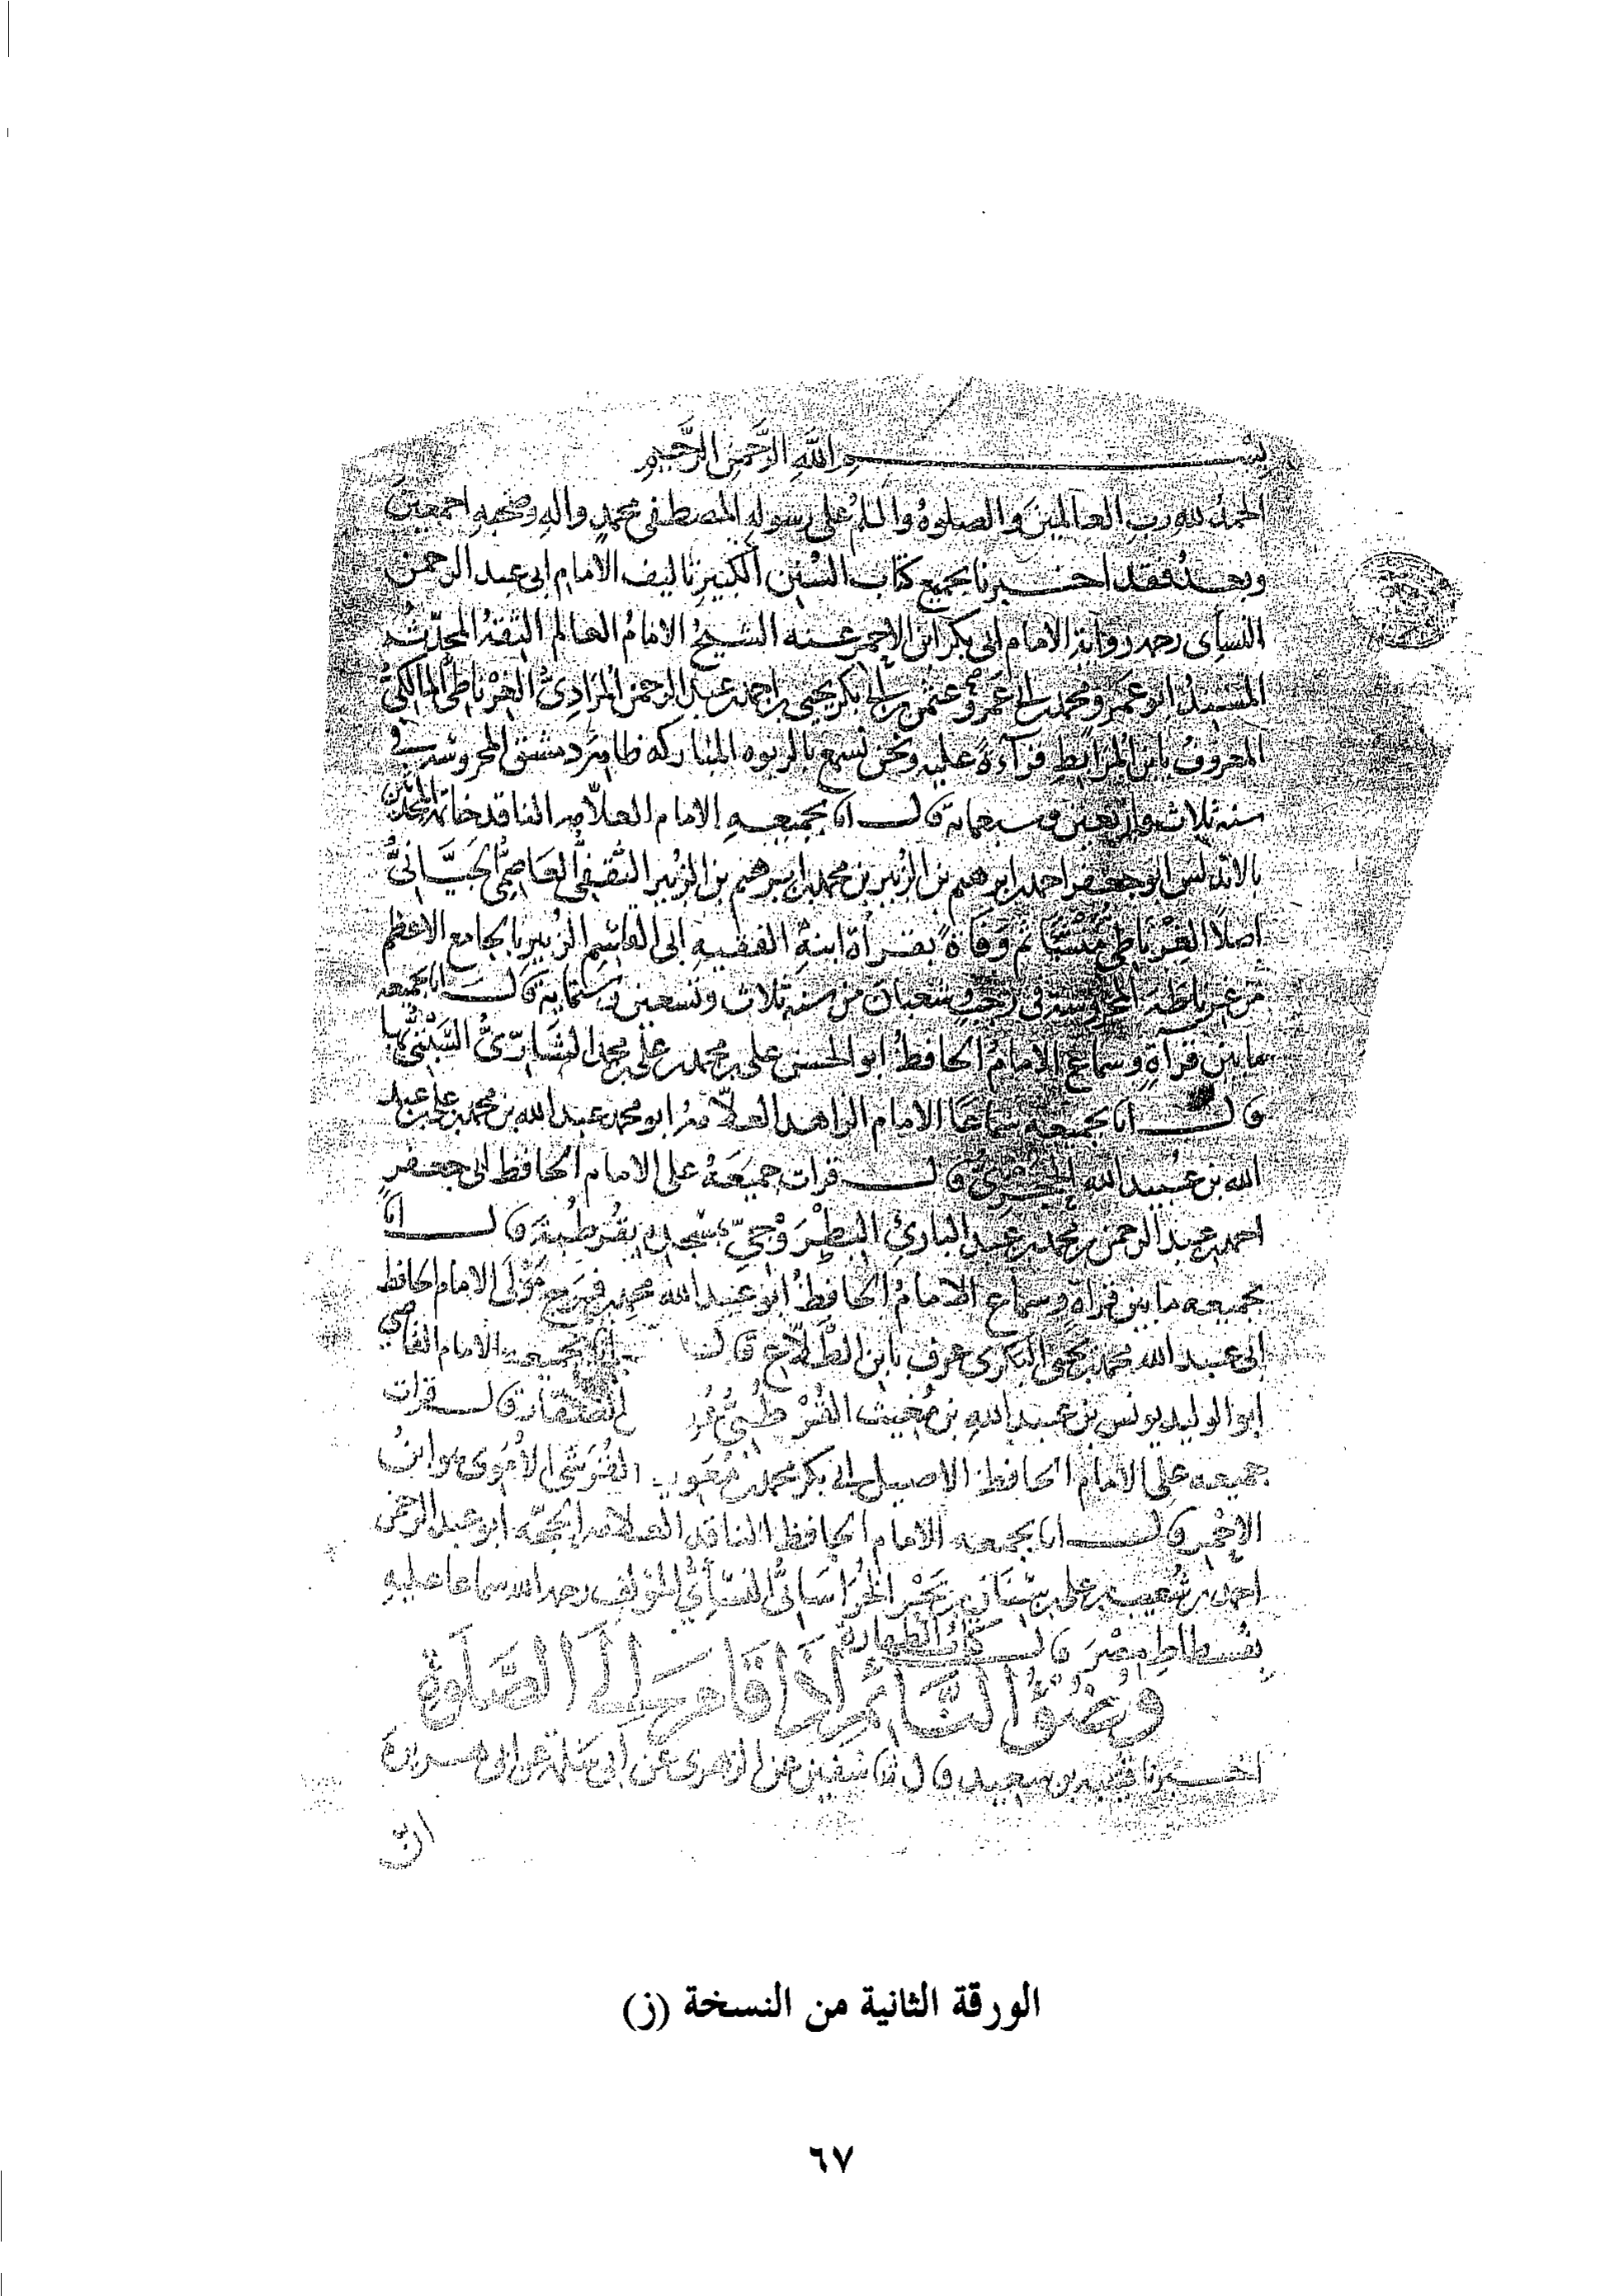 بسم الله الرحمن الرحيم
الحمد لله رب العالمين والصلوة والسلم على رسوله المصطفى محمد واله وصحبه اجمعين
وبعد فقد اخبرنا بجميع كتاب السنن الكبير تاليف الامام ابى عبد الرحمن
النسأى رحمه رواية الامام ابى بكر ابن الاحمر عنه الشيخ الامام العالم الثقة المحدث
المسند ابو عمرو محمد بن ابى عمرو عثمن بن ابى بكر يحيى بن احمد بن عبد الرحمن المرادى الغرناطى المالكى
المعروف بابن المرابط قرآءة عليه ونحن نسمع بالربوه المباركه ظاهر دمشق المحروسه فى
سنه ثلاث واربعين وسبعمائة قال انا بجميعه الامام العلامه الناقد خاتمة المحدثين
بالاندلس ابو جعفر احمد بن ابرهيم بن الزبير بن محمد بن ابرهيم بن الزبير الثقفى العاصمى الجيانى
اصلا الغرناطى منشأ ثم وفاة بقرأة ابنه الفقيه ابى القاسم الزبير بالجامع الاعظم
من غرناطة المحروسة فى رجب وشعبان من سنه ثلاث وتسعين وستمايه قال انا بجميعه
ما بين قرأة وسماع الامام الحافظ ابو الحسن على بن محمد بن على بن محمد الشارى السبتى بها
قال انا بجميعه سماعا الامام الزاهد العلامه ابو محمد عبد الله بن محمد بن على بن عبد
الله بن عبيد الله الحجرى قال قرات جميعه على الامام الحافظ ابى جعفر
احمد بن عبد الرحمن بن محمد بن عبد البارئ البطروجى بقرطبة قال انا
بجميعه ما بين قرأة وسماع الامام الحافظ ابو عبد الله محمد بن فرج مولى الامام الحافظ
ابى عبد الله محمد بن يحيى البكرى عرف بابن الطلاع قال انا بجميعه الامام القاضى
ابو الوليد يونس بن عبد الله بن مغيث القرطبى عرف بابن الصفار قال قرات
جميعه على الامام الحافظ الاصيل ابى بكر محمد بن معوية القرشى الاموى هو ابن
الاحمر قال انا بجميعه الامام الحافظ الناقد العلامه الحجة ابو عبد الرحمن
احمد بن شعيب بن على بن سنان بن بحر الخراسانى النسأى المؤلف رحمه الله سماعا عليه
بفسطاط مصر قال كتاب الطهارة
وضوء النائم اذا قام الى الصلوة
اخبرنا قتيبه بن سعيد قال ثنا سفين عن الزهرى عن ابى سلمة عن ابى هريرة
ان
الورقة الثانية من النسخة (ز)
٦٧